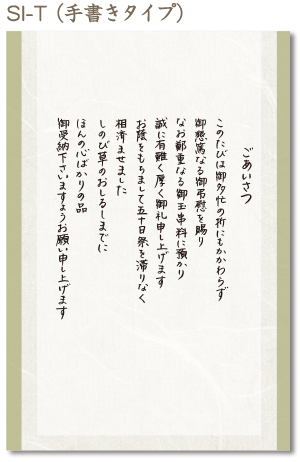 SI-T（手書きタイプ）
ごあいさつ
このたびは御多忙の折にもかかわらず
御懇篤なる御弔慰を賜り
なお鄭重なる御玉串料に預かり
誠に有難く厚く御礼申し上げます
お蔭をもちまして五十日祭を滞りなく
相済ませました
しのび草のおしるしまでに
ほんの心ばかりの品
御受納下さいますようお願い申し上げます